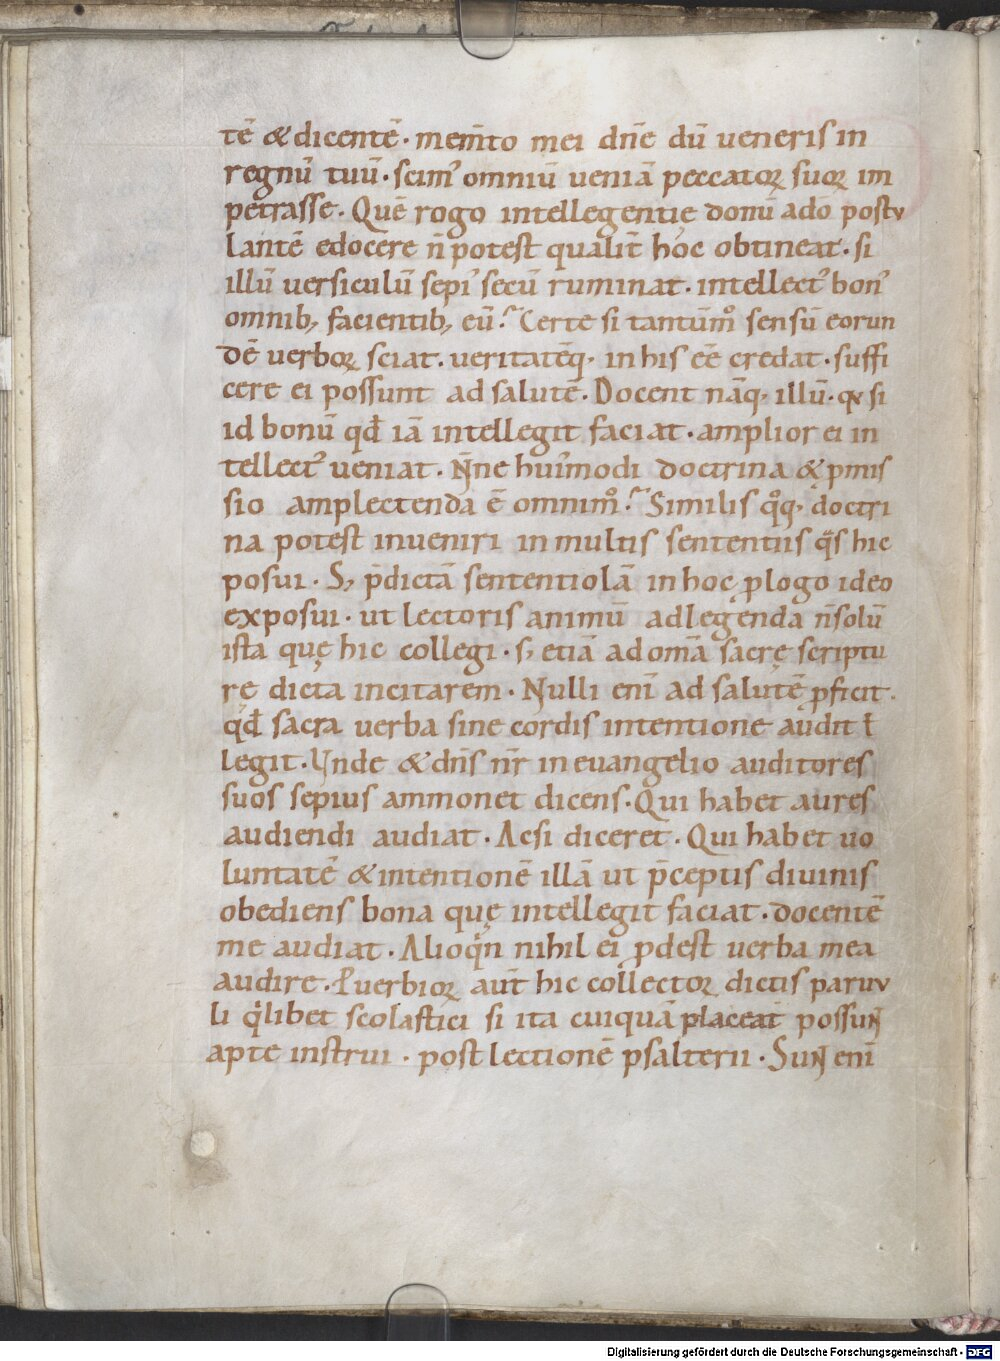 tē &dicentē · mem̄to mei dn̄e dū ueneris in
regnū tuū · scim᾽ omniū ueniā peccatoꝝ suoꝝ im
petrasse · Quē rogo intellegentie donū adō postu
lantē edocere n̄ potest qualit̄ hoc obtineat · si
illū uersiculū sepi᾽ secū ruminat · intellect᾽ bon᾽
omnib; facientib; eū · Certe si tantūm̊ sensū eorun
dē uerboꝝ sciat · ueritatēq; in his eē credat · suffi
cere ei possunt ad salutē · Docent nāq; illū · qꝫ si
id bonū qđ iā intellegit faciat · amplior ei in
tellect᾽ ueniat · N̄ne hui᾽modi doctrina & ꝓmis
sio amplectenda ē omnim̊ · Similis qͦq; doctri
na potest inueniri in multis sententiis qͣs hic
posui · S; p̄dictā sententiolā in hoc ꝓlogo ideo
exposui · ut lectoris animū adlegenda n̄ solū
ista quę hic collegi · s; etiā ad omā sacrę scriptu
rę dicta incitarem · Nulli eni᾽ ad salutē ꝓficit ·
qđ sacra uerba sine cordis intentione audit ł
legit · Unde & dn̄s nr̄ in euangelio auditores
suos sepius ammonet dicens · Qui habet aures
audiendi audiat · Acsi diceret · Qui habet uo
luntatē & intentionē illā ut p̄ceptis diuinis
obediens bona quę intellegit faciat · docentē
me audiat · Alioqͥn nihil ei ꝓdest uerba mea
audire · Ꝓuerbioꝝ aut̄ hic collectoꝝ dictis paruu
li qͥlibet scolastici si ita cuiquā placeat possunt
apte instrui · post lectionē psalterii · Sunt eni᾽
Digitalisierung gefördert durch die Deutsche Forschungsgemeinschaft - DFG